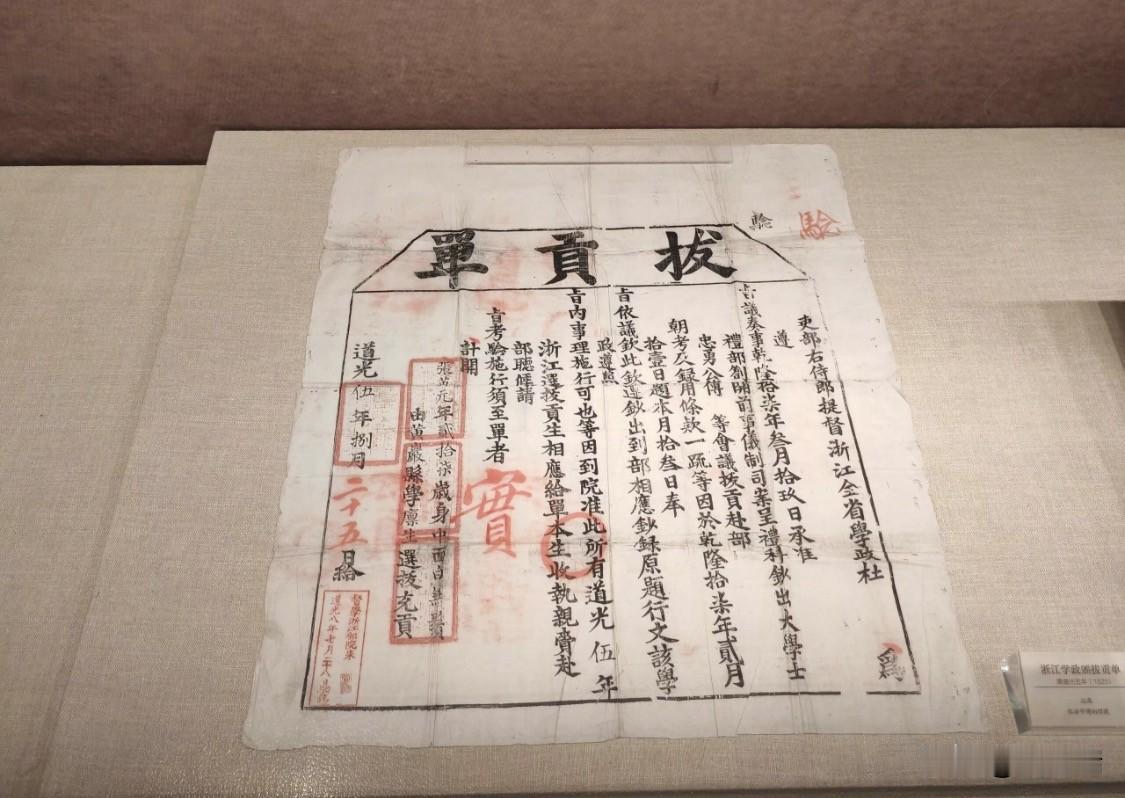 拔貢單
驗
驗
吏部右侍郎提督浙江全省學政杜
爲
遵
旨議奏事乾隆拾柒年叁月拾玖日承准
禮部劄開前事儀制司案呈禮科鈔出大學士
忠勇公傅 等會議拔貢赴部
朝考及録用條款一疏等因於乾隆拾柒年貳月
拾壹日題本月拾叁日奉
旨依議欽此欽遵鈔出到部相應鈔録原題行文該學
政遵照
旨內事理施行可也等因到院准此所有道光伍年
浙江選拔貢生相應給單本生收執親賫赴
部聽候請
旨考驗施行須至單者
計開
張 元年貳拾柒歲身中面白無鬚
由黃巖縣學廩生選拔充貢
實
道光伍年捌月二十五日給
督學浙江部院朱
道光八年七月二十八日
浙江学政颁拔贡单
清道光五年（1825）